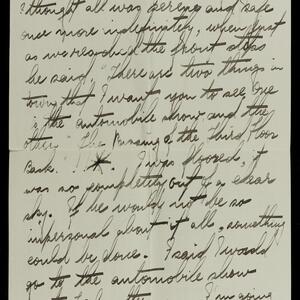 I thought all was serene and safe
once more indefinitely, when just
as we reached the front steps
he said, "There are two things in
town that I want you to see, One
is the automobile show and the
other "The Passing of the Third Floor
Back. . . . I was floored, it
was so completely out of a clear
sky. If he would not be so
impersonal about it all, something
could be done. I said I would
go to the automobile show
I'm going